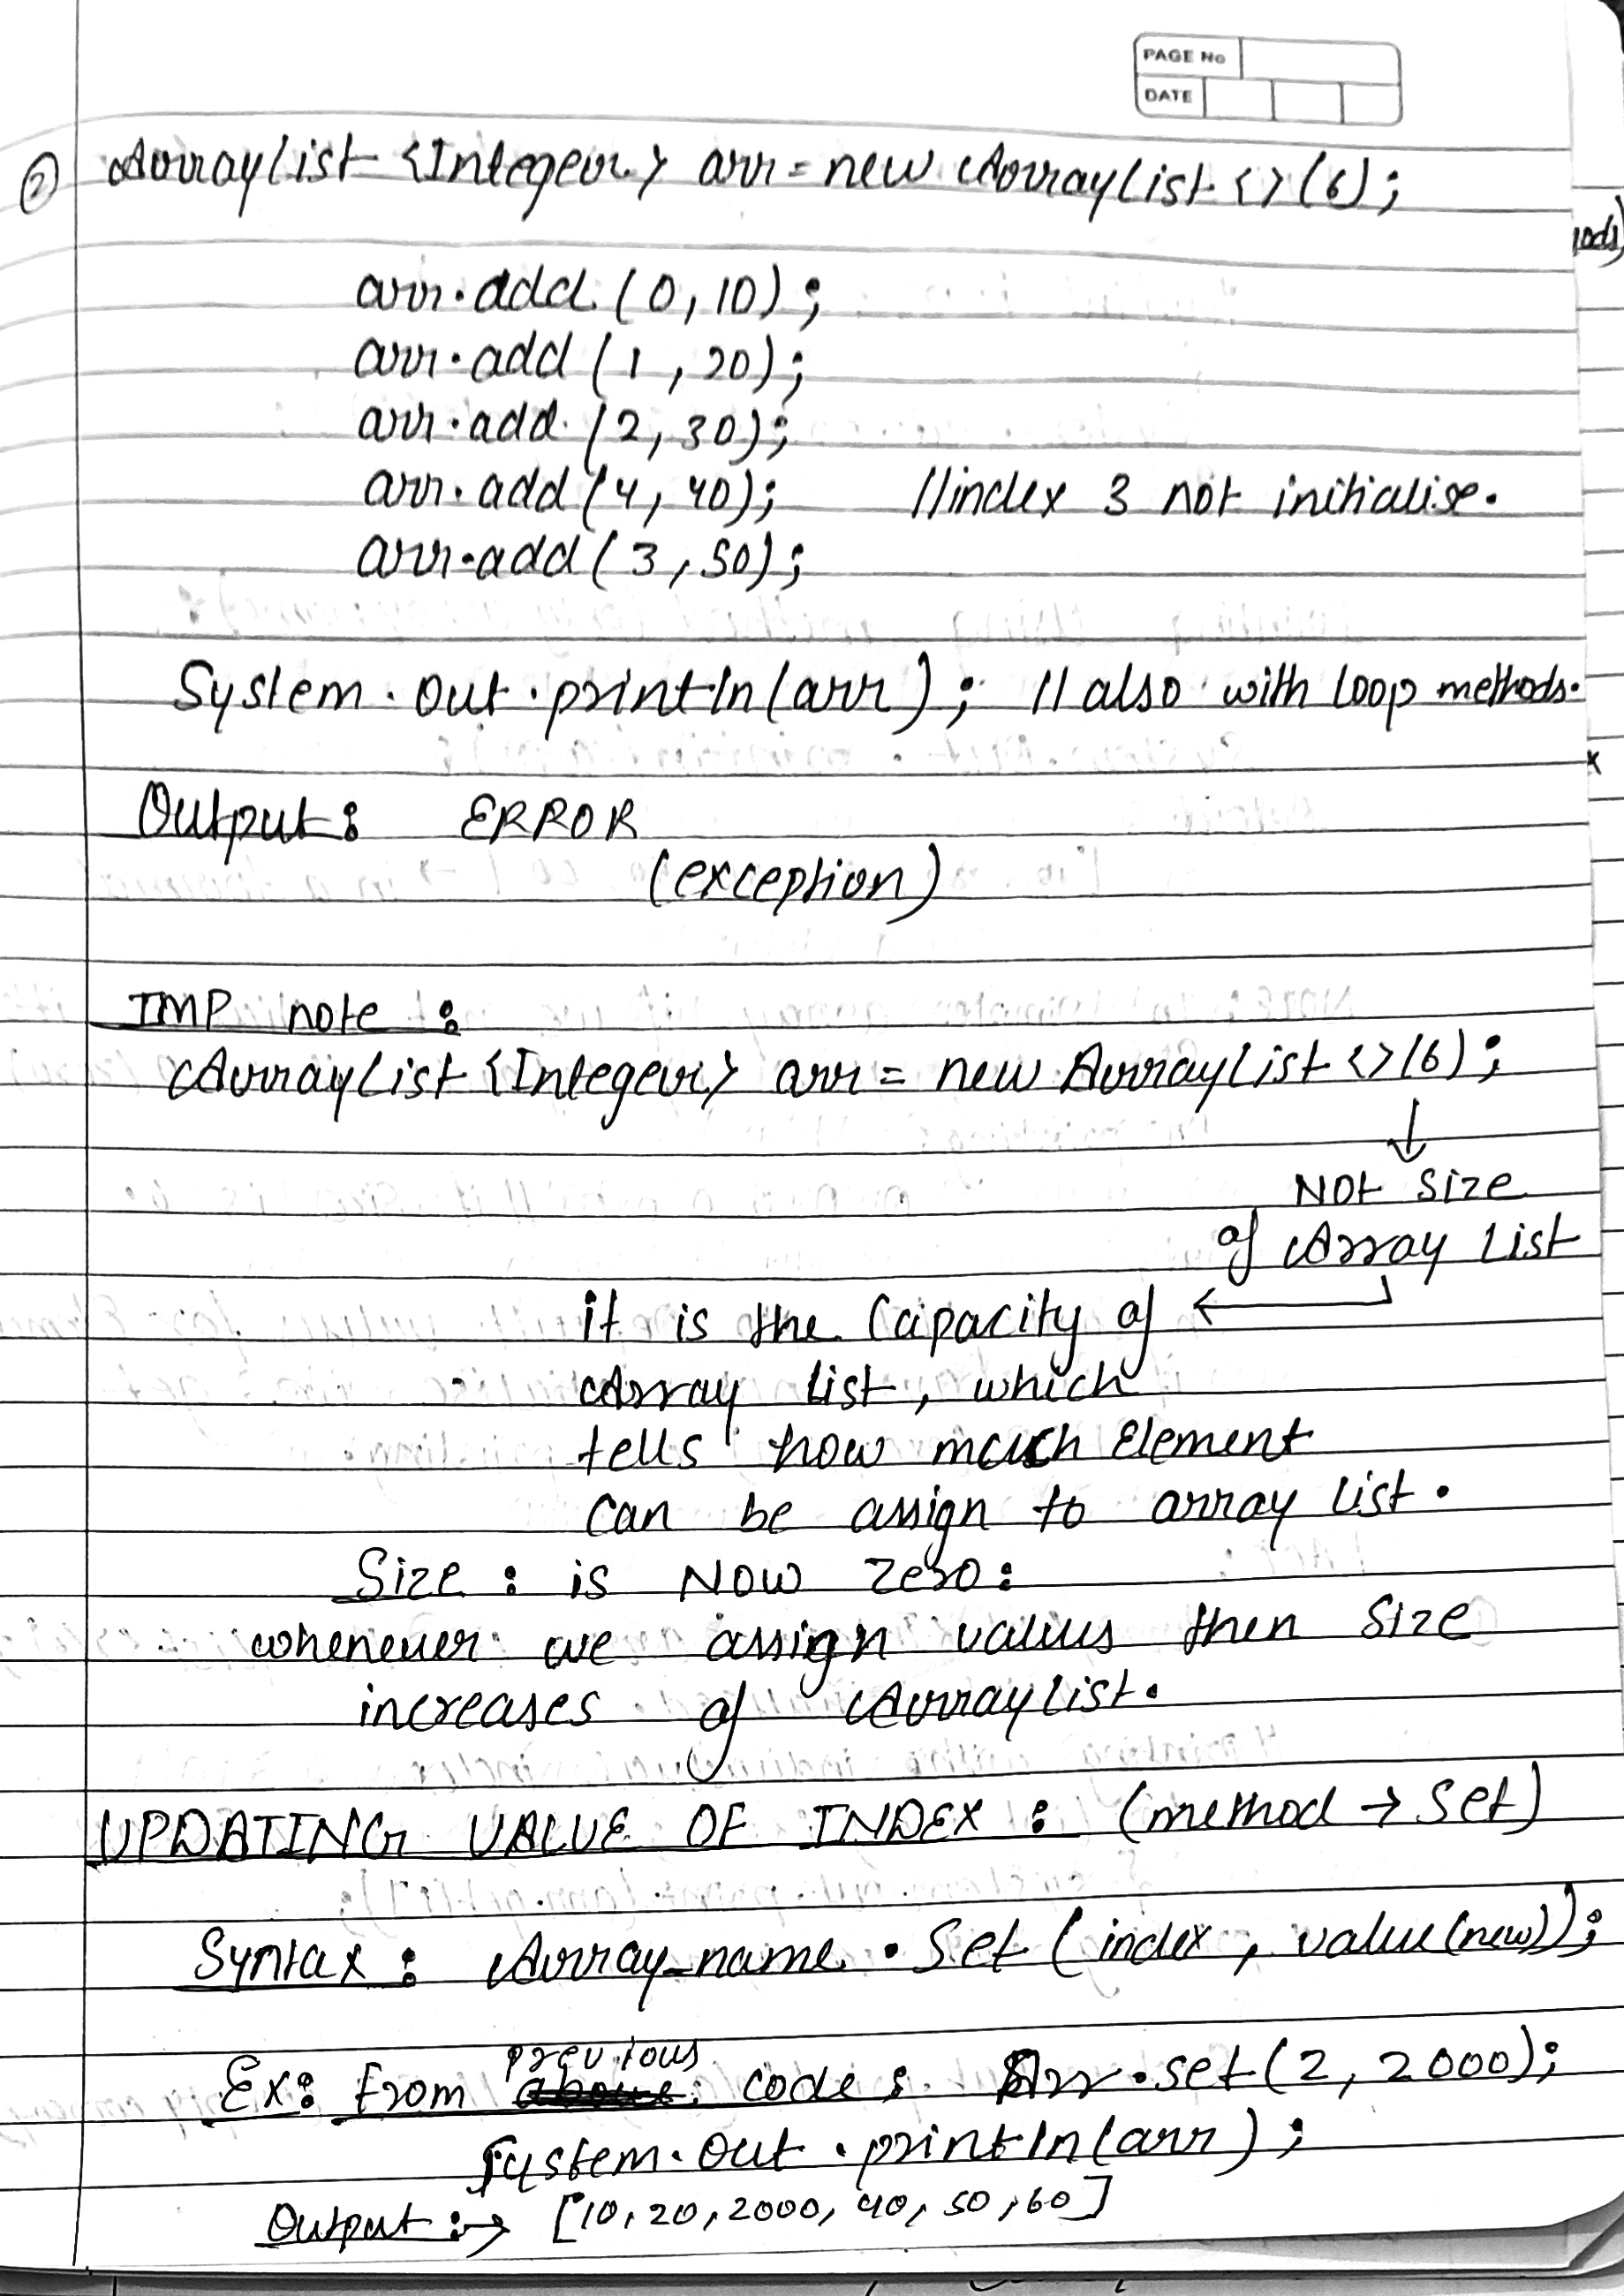 PAGE No
DATE
② ArrayList <Integer> arr = new ArrayList <>(6);
ods)
arr.add.(0,10);
arr.add(1,20);
arr.add.(2,30);
arr.add(4,40); //index 3 not initialise.
arr.add(3,50);
System.out.println(arr); // also with loop methods.
Output: ERROR
(exception)
IMP note:
ArrayList <Integer> arr = new ArrayList <>(6);
↓
Not size
of Array List
it is the Capacity of ←
Array list, which
tells how much Element
can be assign to array list.
Size : is NOW zero:
whenever we assign values then size
increases of ArrayList.
UPDATING VALUE OF INDEX : (method → set)
Syntax : Array_name.Set (index, value(new));
previous
Ex: From code: Arr.set(2, 2000);
System.out.println(arr);
Output :→ [10,20,2000,40,50,60]